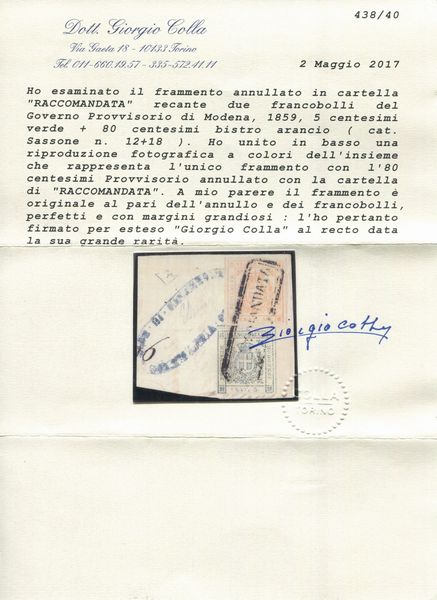 438/40
Dott. Giorgio Colla
Via Gaeta 18 - 10133 Torino
Tel. 011-660.19.57 - 335-572.41.11
2 Maggio 2017
Ho esaminato il frammento annullato in cartella
"RACCOMANDATA" recante due francobolli del
Governo Provvisorio di Modena, 1859, 5 centesimi
verde + 80 centesimi bistro arancio ( cat.
Sassone n. 12+18 ). Ho unito in basso una
riproduzione fotografica a colori dell'insieme
che rappresenta l'unico frammento con l'80
centesimi Provvisorio annullato con la cartella
di "RACCOMANDATA". A mio parere il frammento è
originale al pari dell'annullo e dei francobolli,
perfetti e con margini grandiosi : l'ho pertanto
firmato per esteso "Giorgio Colla" al recto data
la sua grande rarità.
ANDATA
Giorgio Colla
COLLA
TORINO